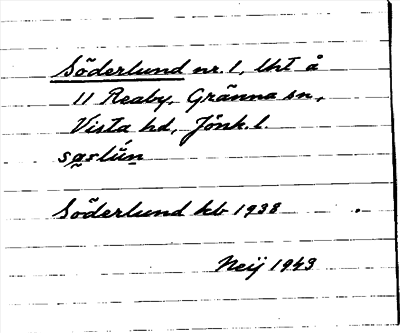 Söderlund nr. 1, lht å
11 Reaby, Gränna sn,
Vista hd, Jönk. l.
sø̱slún
Söderlund kb 1938
Neij 1943